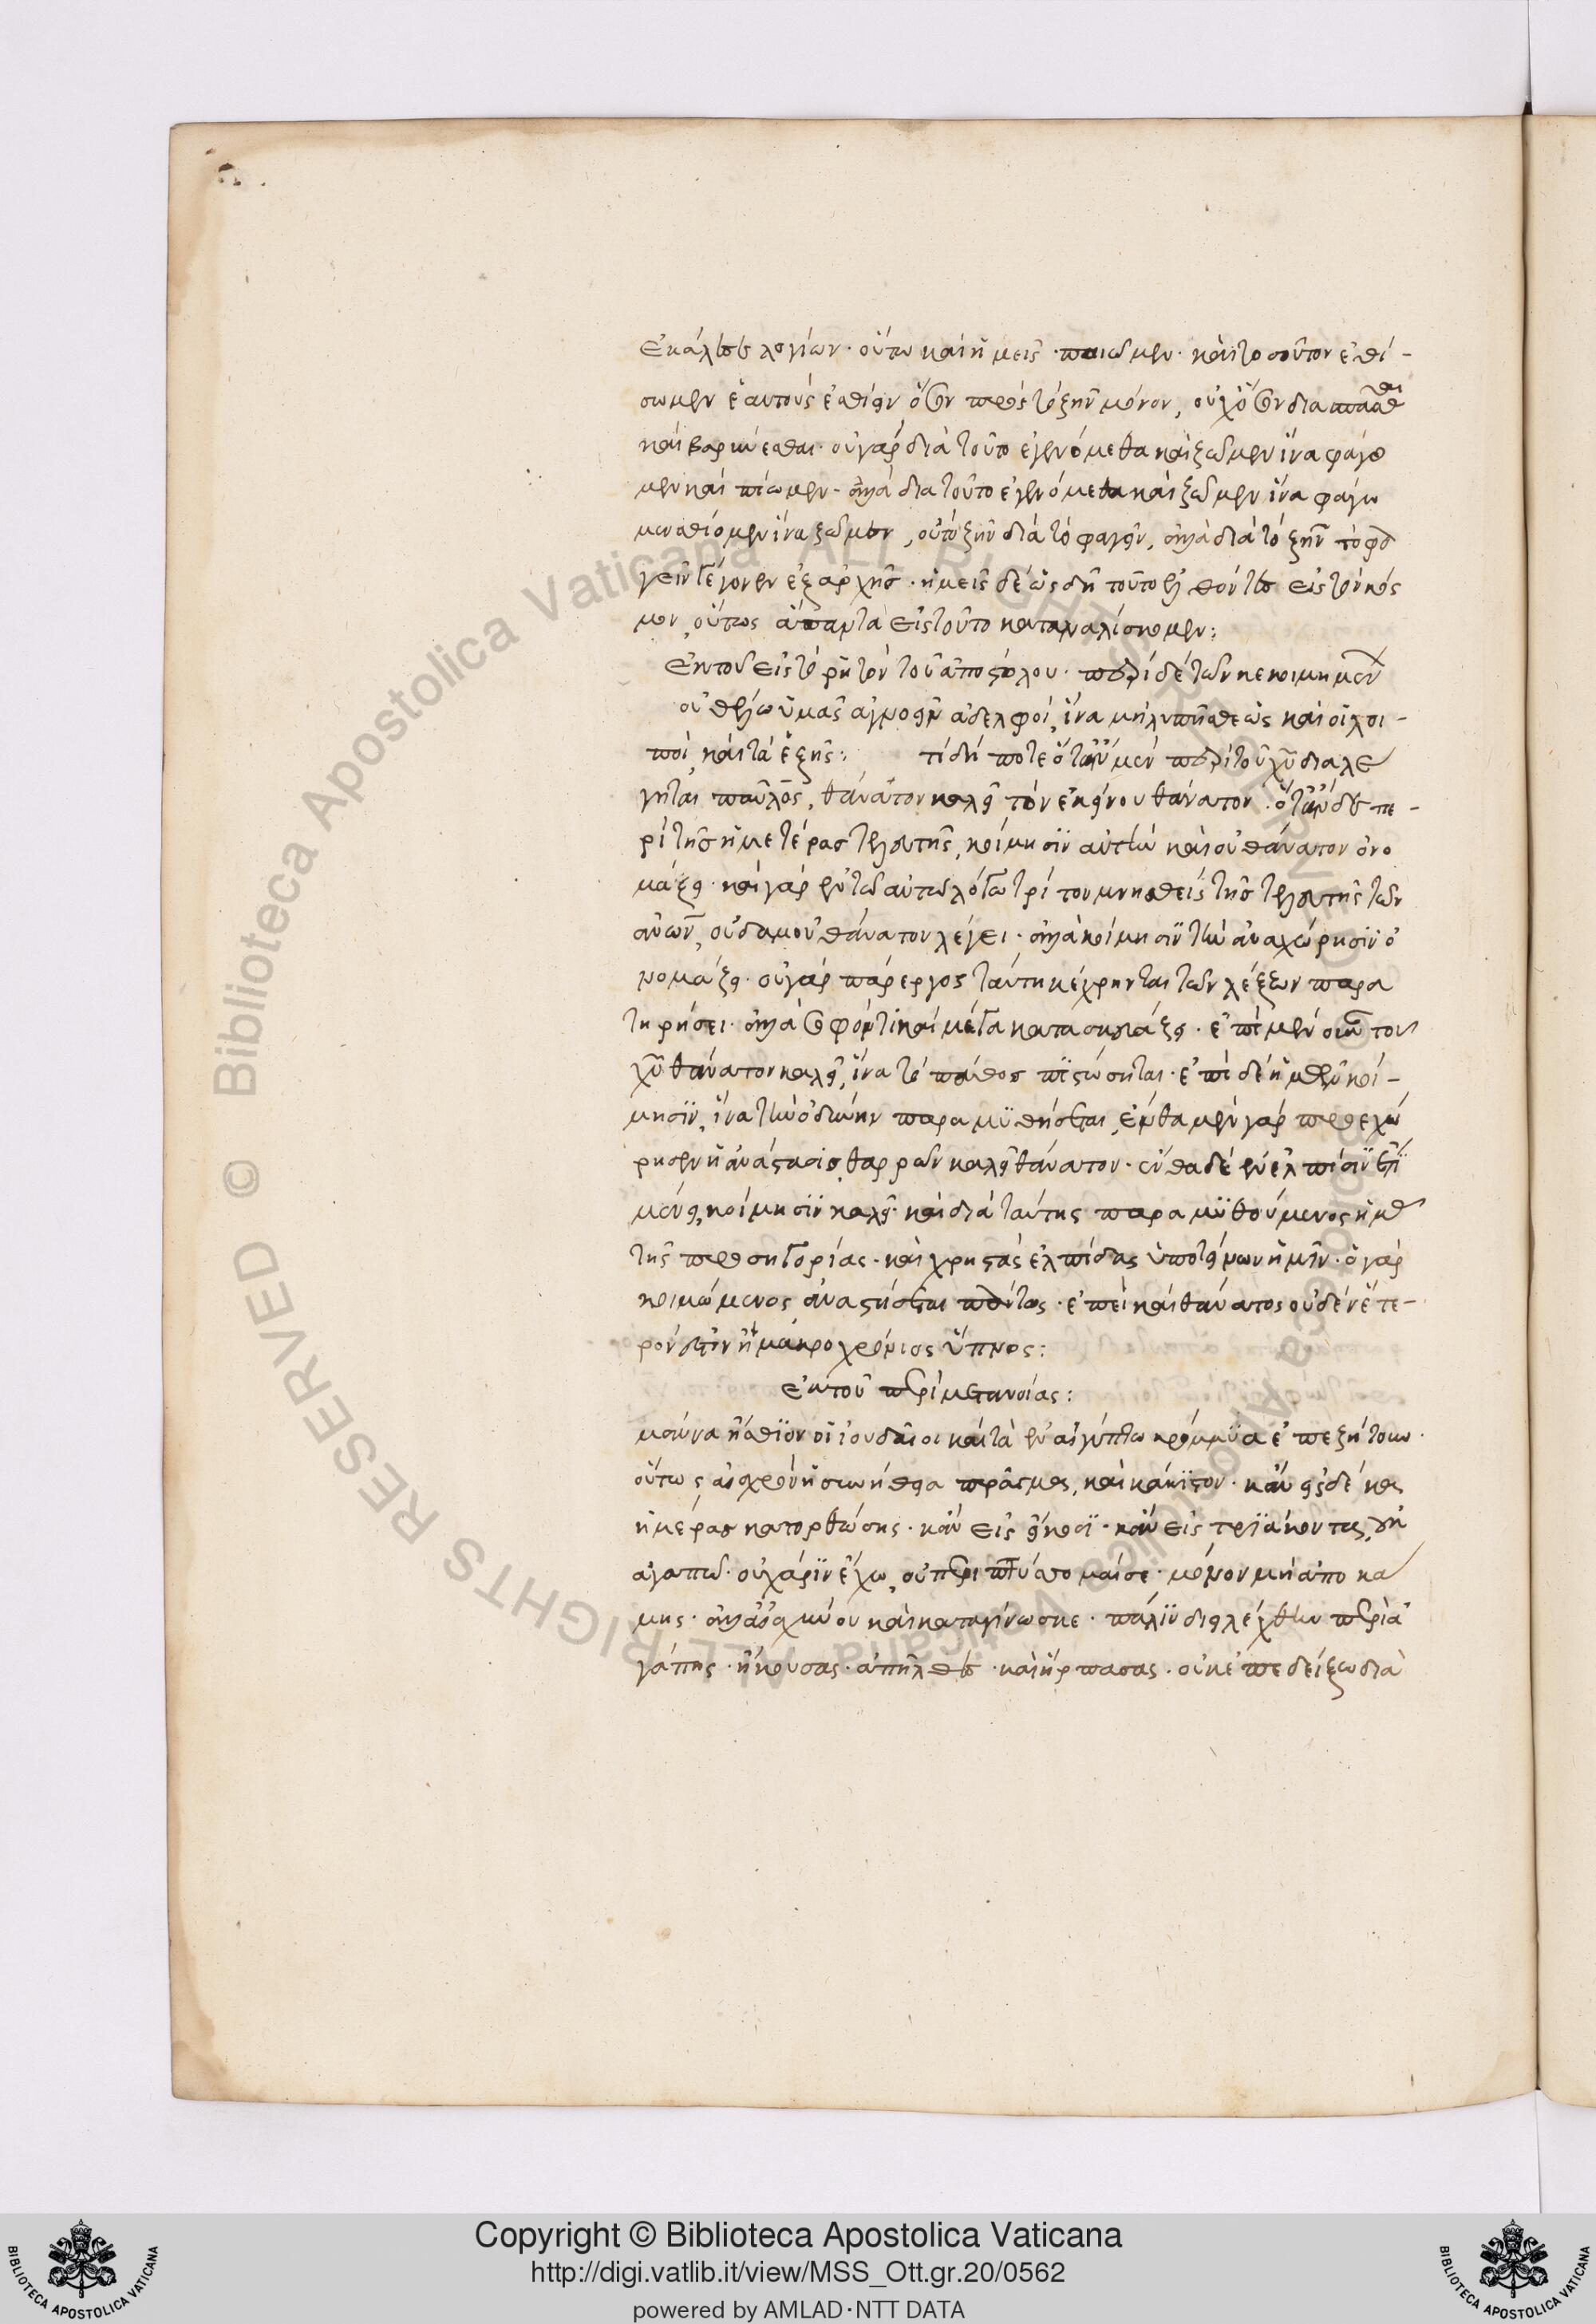 ἐκάλεσε λογίων· οὕτω καὶ ἡμεῖς ποιῶμεν· καὶ τοσοῦτον ἐθί-
σωμεν ἑαυτοὺς ἐσθίειν ὅσον πρὸς τὸ ζῆν μόνον, οὐχ ὅσον διασπᾶσθαι
καὶ βαρύνεσθαι· οὐ γὰρ διὰ τοῦτο ἐγενόμεθα καὶ ζῶμεν ἵνα φάγο
μεν καὶ πίωμεν· ἀλλὰ διατοῦτο ἐγενόμεθα καὶ ζῶμεν ἵνα φάγω
μεν ἐσθίομεν ἵνα ζῶμεν, οὐ τὸ ζῆν διὰ τὸ φαγεῖν, ἀλλὰ διὰ τὸ ζῆν τὸ φα
γεῖν γέγονεν ἐξαρχῆς· ἡμεῖς δὲ ὡς δὴ τοῦτο ἐλθόντες εἰς τὸν κόσ
μον, οὕτως ἅπαντα εἰς τοῦτο καταναλίσκομεν:
Ἐκ τοῦ εἰς τὸ ῥητὸν τοῦ ἀποστόλου· περὶ δὲ τῶν κεκοιμημένων
οὐ θέλω ὑμᾶς ἀγνοεῖν ἀδελφοί, ἵνα μὴ λυπῆσθε ὡς καὶ οἱ λοι-
ποί, καὶ τὰ ἑξῆς: τί δή ποτε ὅταν μὲν περὶ τοῦ χυ διαλέ
γηται παῦλος, θάνατον καλεῖ τὸν ἐκείνου θάνατον· ὅταν δὲ πε-
ρὶ τῆς ἡμετέρας τελευτῆς, κοίμησιν αὐτὴν καὶ οὐ θάνατον ὀνο
μάζει· καὶ γὰρ ἐν τῶ αὐτῶ λόγω τρίτου μνησθεὶς τῆς τελευτῆς τῶν
ανων, οὐδαμοῦ θάνατον λέγει· ἀλλὰ κοίμησιν τὴν ἀναχώρησιν ὀ
νομάζει· οὐ γὰρ πάρεργος ταύτη κέχρηνται τῶν λέξεων παρα
τηρήσει· ἀλλὰ σοφόν τι καὶ μέγα κατασκευάζει· ἐπὶ μὲν οὖν τοῦ
χυ θάνατον καλεῖ, ἵνα τὸ πάθος πιστώσηται· ἐπὶ δὲ ἡμῶν κοί-
μησιν, ἵνα τὴν ὀδύνην παραμυθήσεται, ἔνθα μὲν γὰρ προεχώ
ρησεν ἡ ἀνάστασις, θαρρῶν καλεῖ θάνατον· ἔνθα δὲ ἐν ἐλπίσιν ἔτι
μένει, κοίμησιν καλεῖ· καὶ διὰ ταύτης παραμυθούμενος ἡμᾶς
τῆς προσηγορίας· καὶ χρηστὰς ἐλπίδας ὑποτείνων ἡμῖν· ὁ γὰρ
κοιμώμενος, ἀναστήσεται πάντως· ἐπεὶ καὶ θάνατος οὐδὲν ἕτε-
ρόν ἐστιν ἢ μακροχρόνιος ὕπνος:
ἐκ τοῦ περὶ μετανοίας:
μάννα ἤσθιον οἱ ἰουδαῖοι καὶ τὰ ἐν αἰγύπτω κρόμμυα ἐπεζήτουν·
οὕτως αἰσχρὸν ἡ συνήθεια πρᾶγμα, καὶ κάκιστον· κἂν εἰς δέκα
ἡμέρας κατορθώσης· κἂν εἰς εἴκοσι· κἂν εἰς τριάκοντα,
ἀγαπῶ· οὐ χάριν ἔχω, οὐ περιπτύσσομαί σε· μόνον μὴ ἀποκά
μης· ἀλλ' αἰσχύνου καὶ καταγίνωσκε· πάλιν διελέχθην περὶ ἀ
γάπης· ἤκουσας· ἀπῆλθες· καὶ ἥρπασας· οὐκ ἐπεδείξω διὰ
Copyright © Biblioteca Apostolica Vaticana
http://digi.vatlib.it/view/MSS_Ott.gr.20/0562
powered by AMLAD·NTT DATA
BIBLIOTECA APOSTOLICA VATICANA
BIBLIOTECA APOSTOLICA VATICANA
© Biblioteca Apostolica Vaticana ALL RIGHTS RESERVED
© Biblioteca Apostolica Vaticana ALL RIGHTS RESERVED